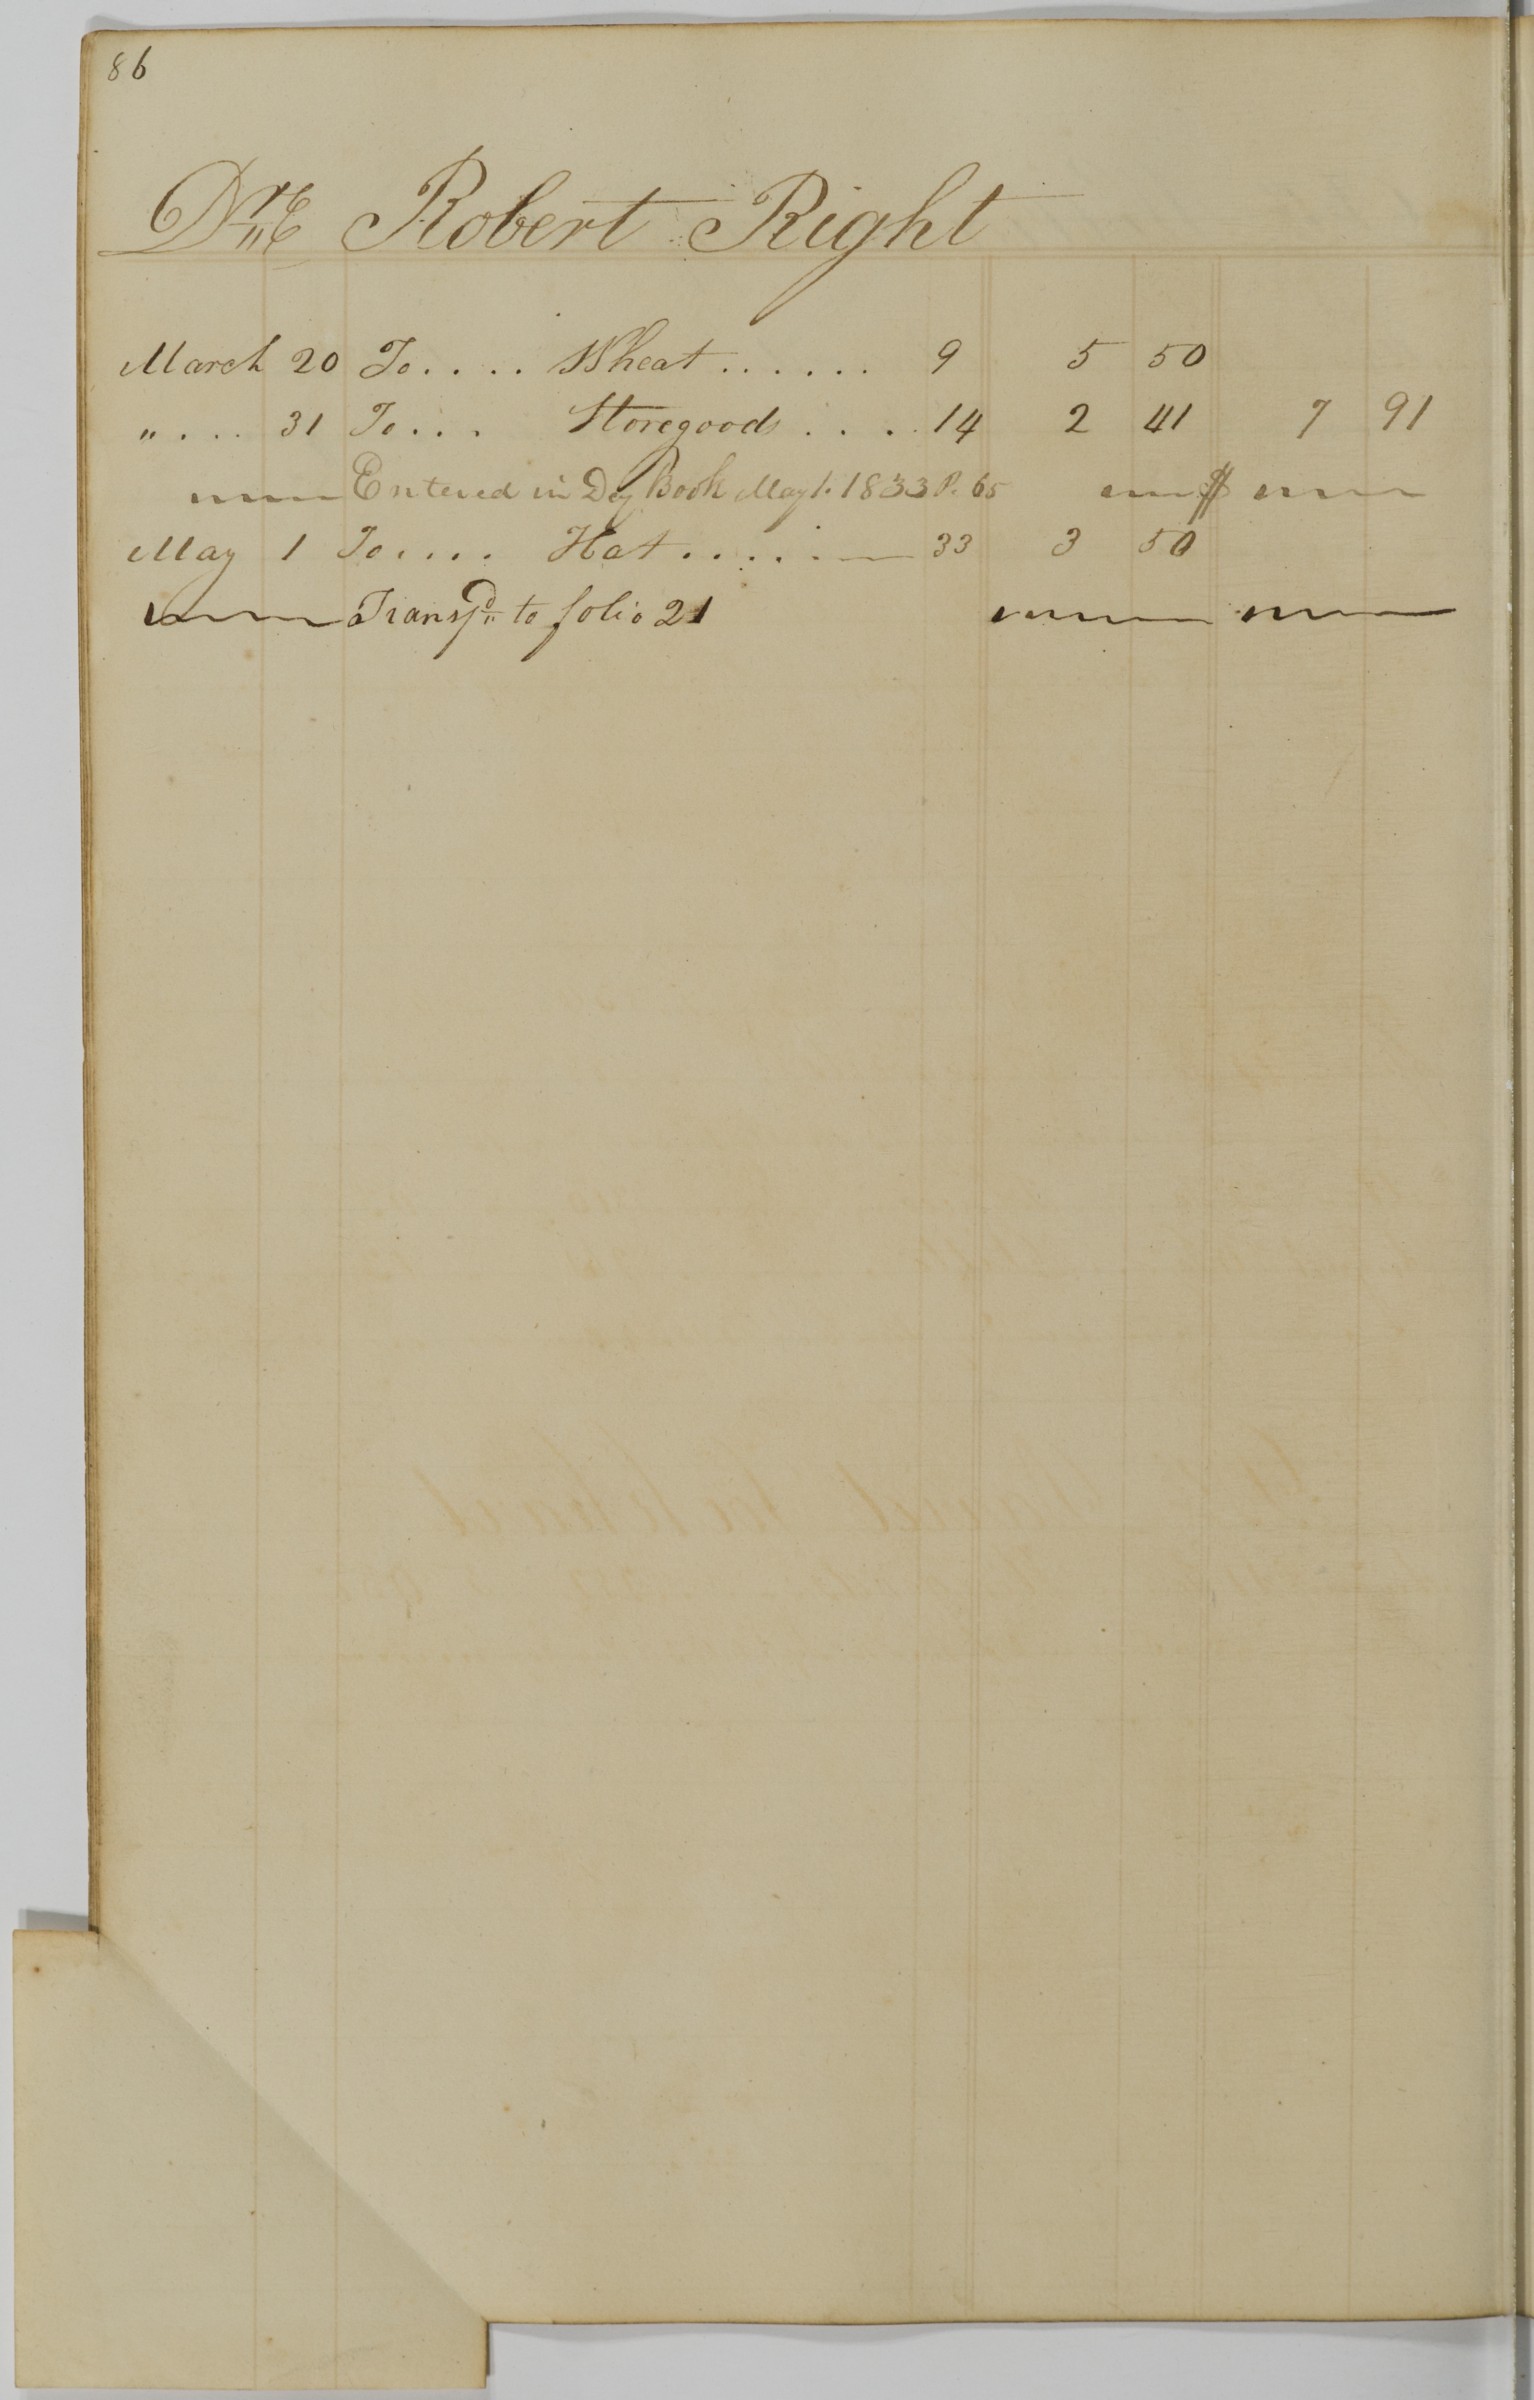 86
Dr. Robert Right
March 20 To.... Wheat...... 9 5 50
".... 31 To... Storegoods.... 14 2 41 7 91
Entered in Day Book May 1. 1833 P. 65 $
May 1 To.... Hat..... 33 3 50
Transfd to folio 21